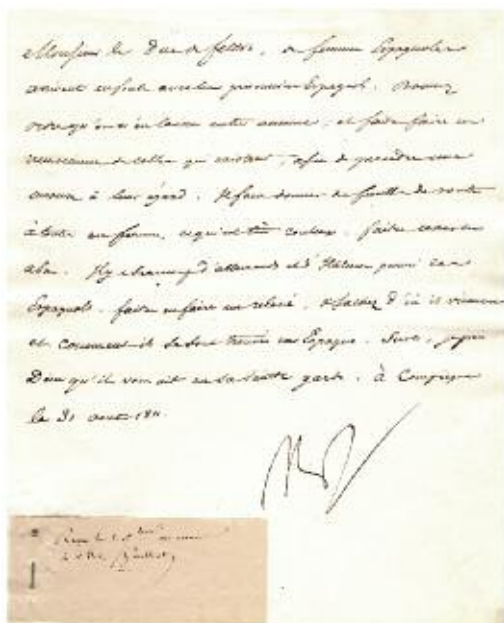 Monsieur le Duc de feltre, des femmes Espagnoles
arrivent en foule avec les prisonniers Espagnols. Donnez
ordre qu'on n'en laisse entrer aucune, et faites faire un
recensement de celles qui existent, afin de prendre une
mesure à leur égard. Il faut donner des feuilles de route
à toutes ces femmes, ce qui est très couteux. faites cesser
cela. Il y a beaucoup d'allemands et d'Italiens parmi ces
Espagnols. faites en faire un relevé, & sachez d'où ils viennent
et comment ils se sont trouvés en Espagne. Sur ce, je prie
Dieu qu'il vous ait en sa sainte garde. à Compiegne
le 31 aout 1811.
Np